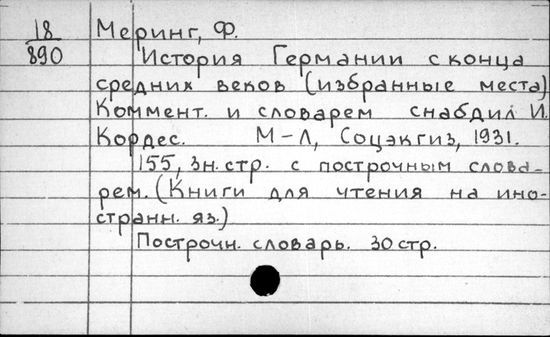 18 Меринг, Ф.
890 История Германии с конца
средних веков (избранные места)
Коммент. и словарем снабдил И.
Кордес. М-Л, Соцэкгиз, 1931.
155, 3н. стр. с построчным слова-
рем. (Книги для чтения на ино-
странн. яз.)
Построчн. словарь. 30 стр.